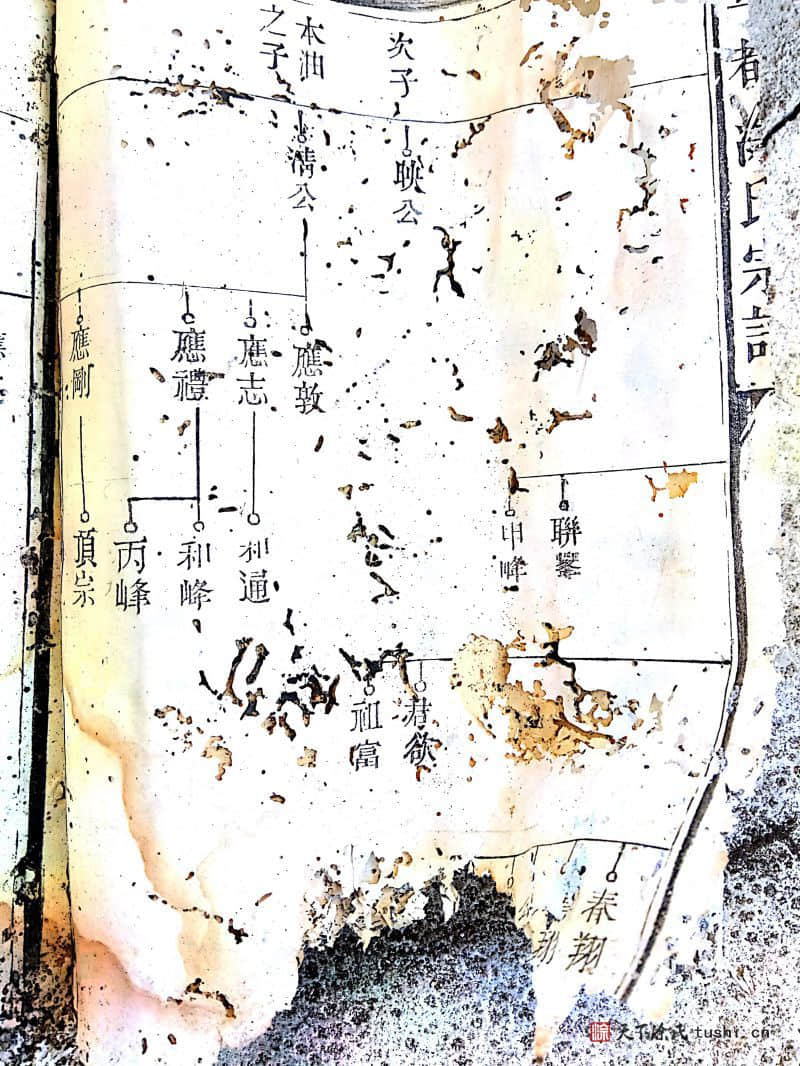 都涂氏宗譜
次子
本油
之子
映公
清公
應敦
應志
應禮
應剛
聯
峰
和通
和峰
丙峰
頂宗
君欲
祖富
春翔
翔
天下涂氏 tushi.cn